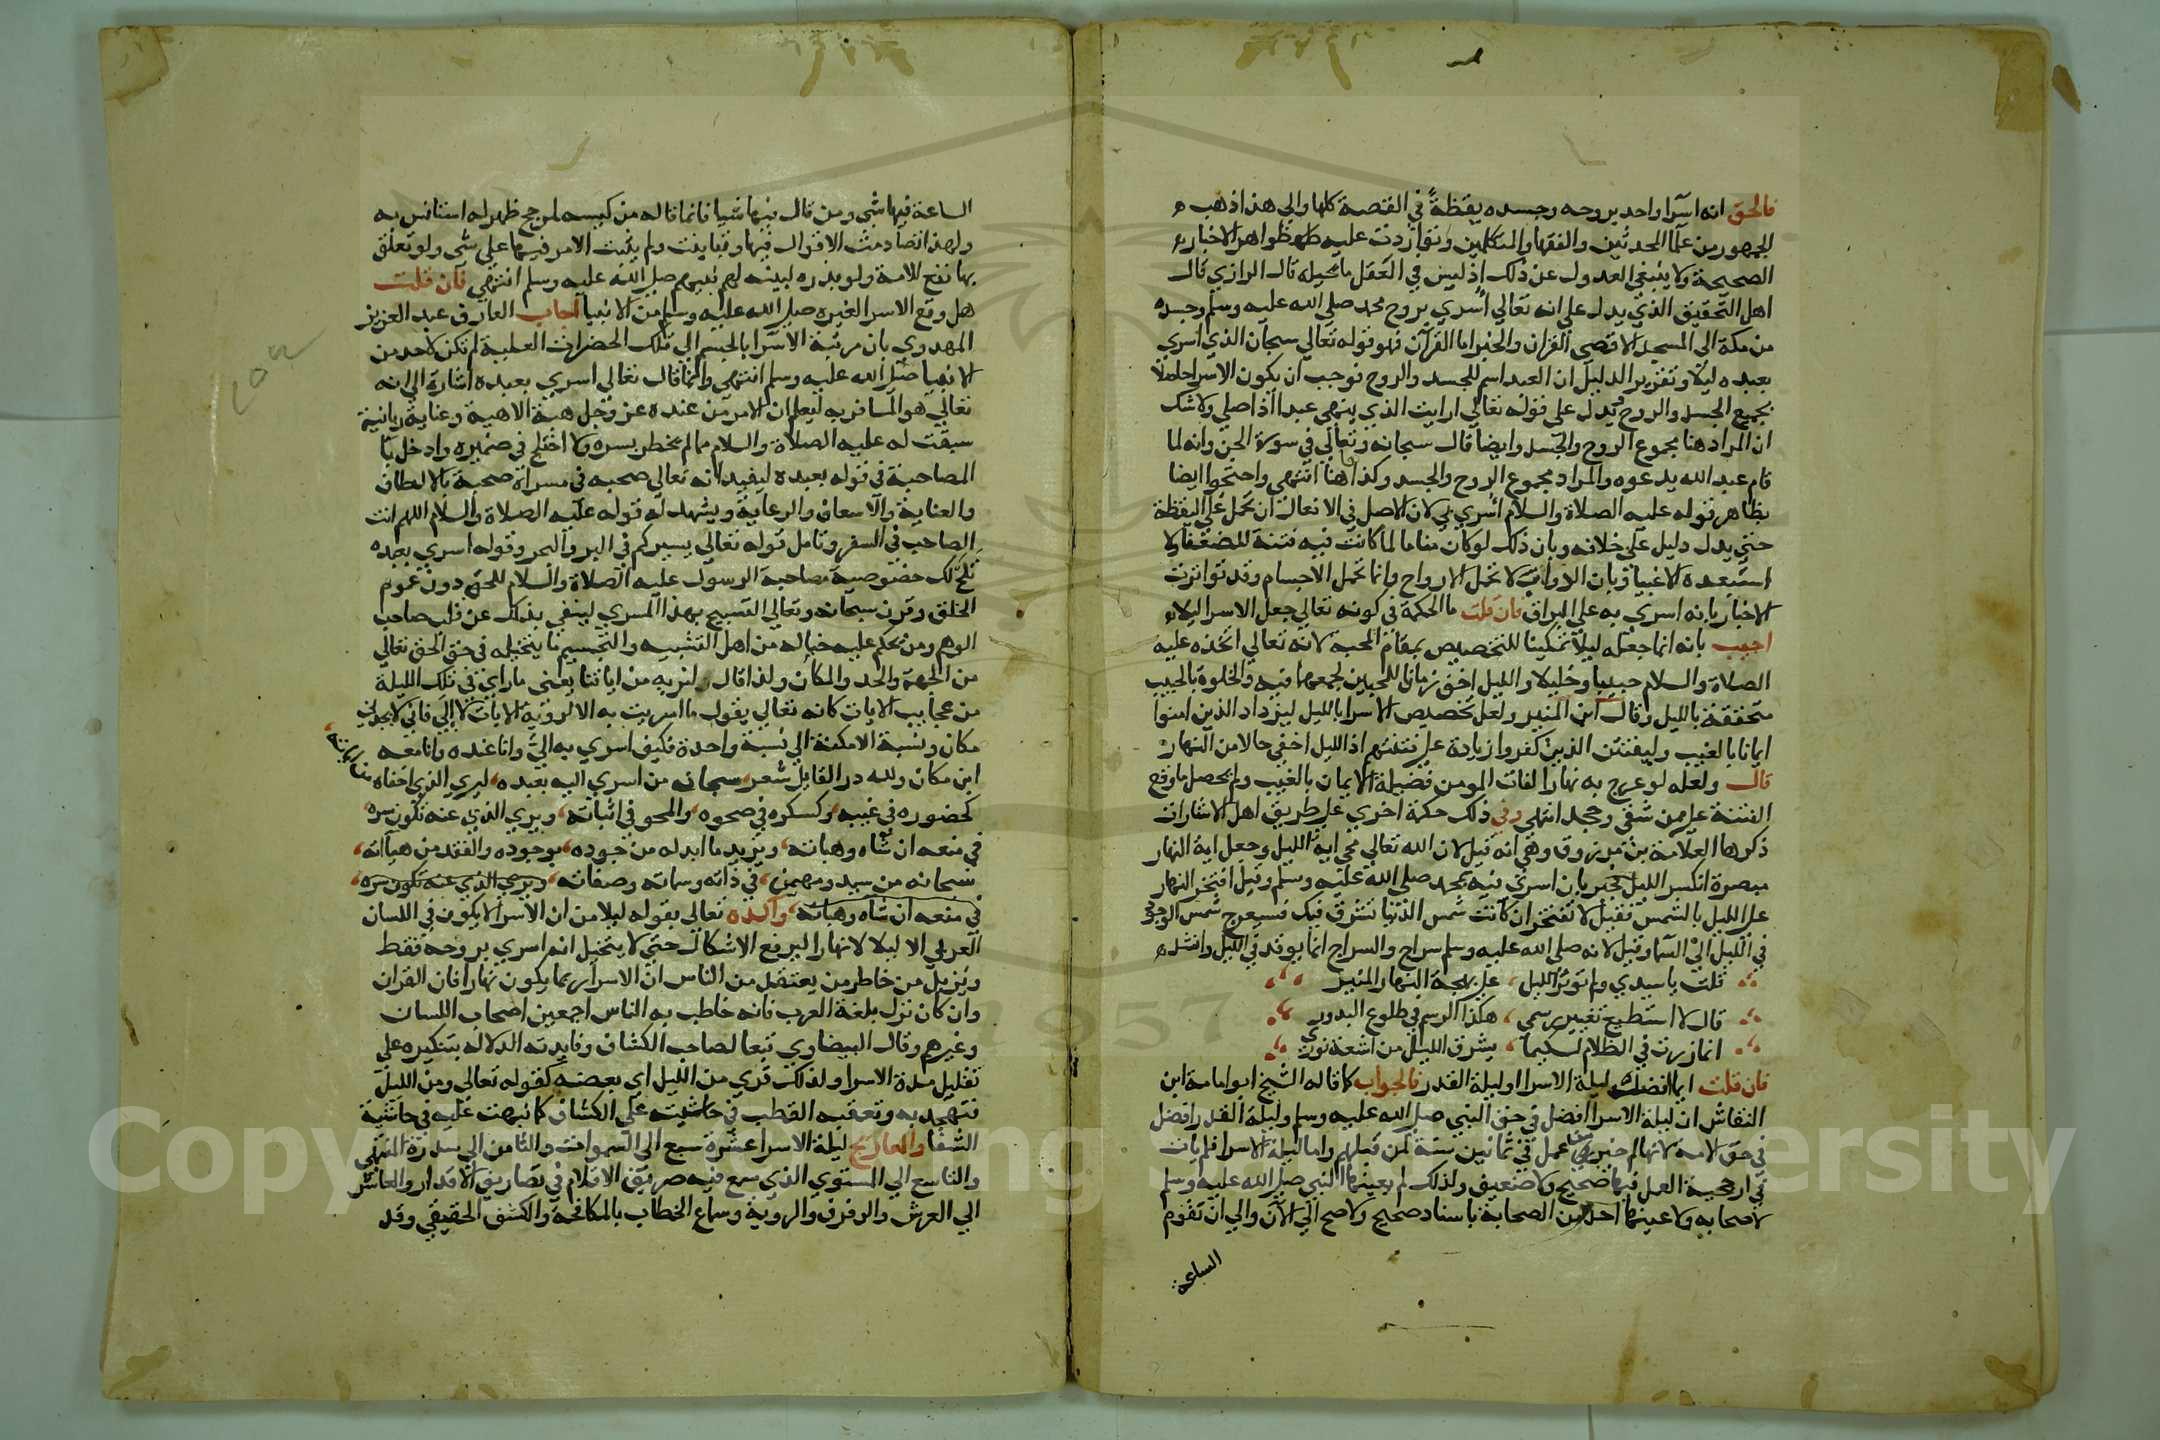 فالحق انه اسرا واحد بروحه وجسده يقظةً في القصة كلها والي هذا ذهب
الجمهور من علما المحدثين والفقها والمتكلمين وتواردت عليه ظواهر الاخبار
الصحيحة ولا ينبغي العدول عن ذلك اذ ليس في العقل ما يحيله قال الرازي قال
اهل التحقيق الذي يدل علي انه تعالي اسري بروح محمد صلي الله عليه وسلم وجسده
من مكة الي المسجد الاقصي القران والخبر اما القرآن فهو قوله تعالي سبحان الذي اسري
بعبده ليلا وتقرير الدليل ان العبد اسم للجسد والروح فوجب ان يكون الاسرا حاصلا
بجميع الجسد والروح يدل علي قوله تعالي ارايت الذي ينهي عبدا اذا صلي ولا شك
ان المراد هنا مجموع الروح والجسد وايضا قال سبحانه وتعالي في سورة الجن وانه لما
قام عبد الله يدعوه والمراد مجموع الروح والجسد وكذا هنا انتهي واحتجوا ايضا
بظاهر قوله عليه الصلاة والسلام اسري بي لان الاصل في الافعال ان تحمل علي اليقظة
حتي يدل دليل علي خلافه وبان ذلك لو كان مناما لما كانت فيه فتنة للضعفا ولا
استبعده الاغبيا وبان الدواب لا تحمل الارواح وانما تحمل الاجسام وقد تواترت
الاخبار بانه اسري به علي البراق فان قلت ما الحكمة في كونه تعالي جعل الاسرا ليلا
اجيب بانه انما جعله ليلا تمكينا للتخصيص بمقام المحبة لانه تعالي اتخذه عليه
الصلاة والسلام حبيبا وخليلا والليل اخق زمان للمحبين لجمعهما فيه والخلوة بالحبيب
متحققة بالليل وقال ابن المنير ولعل تخصيص الاسرا بالليل ليزداد الذين امنوا
ايمانا بالغيب وليفتتن الذين كفروا زيادة علي فتنتهم اذ الليل اخفي حالا من النهار
قال ولعله لو عرج به نهارا لفات المومن فضيلة الايمان بالغيب ولم يحصل ما وقع
الفتنة علي من شقي وجحد انتهي وفي ذلك حكمة اخري علي طريق اهل الاشارات
ذكرها العلامة بن مرزوق وهي انه قيل لان الله تعالي محي اية الليل وجعل اية النهار
مبصرة انكسر الليل فجبر بان اسري فيه بمحمد صلي الله عليه وسلم وقيل افتخر النهار
علي الليل بالشمس فقيل لا تفتخر ان كانت شمس الدنيا تشرق فيك فسيعرج شمس الوجود
في الليل الي السما وقيل لانه صلي الله عليه وسلم سراج والسراج انما يوقد في الليل وانشده
قلت يا سيدي ولم توثر الليل، علي بهجة النهار المنير
قال لا استطيع تغيير رسمي، هكذا الرسم في طلوع البدور
انما زرت في الظلام لكيما، يشرق الليل من اشعة نوري
فان قلت ايما افضل ليلة الاسرا او ليلة القدر فالجواب كما قاله الشيخ ابو امامة ابن
النقاش ان ليلة الاسرا افضل في حق النبي صلي الله عليه وسلم وليلة القدر افضل
في حق الامة لانها لهم خير من عمل في ثمانين سنة لمن قبلهم واما ليلة الاسرا فلم يات
في ارجحية العمل فيها صحيح ولا ضعيف ولذلك لم يعينها النبي صلي الله عليه وسلم
لاصحابه ولا عينها احد من الصحابة باسناد صحيح ولا صح الي الآن والي ان تقوم
الساعة
الساعة فيها شي ومن قال فيها شيا فانما قاله من كيسه لمرجح ظهر له استانس به
ولهذا تصادمت الاقوال فيها وتباينت ولم يثبت الامر فيها علي شي ولو تعلق
بها نفع للامة ولو بذره لبينه لهم نبيهم صلي الله عليه وسلم انتهي فان قلت
هل وقع الاسرا لغيره صلي الله عليه وسلم من الانبيا اجاب العارف عبد العزيز
المهدوي بان مرتبة الاسرا بالجسم الي تلك الحضرات العلية لم تكن لاحد من
الانبيا صلي الله عليه وسلم انتهي وانما قال تعالي اسري بعبده اشارة الي انه
تعالي هو المسافر به ليعلم ان الامر من عنده عز وجل هبة الاهية وعناية ربانية
سبقت له عليه الصلاة والسلام مما لم يخطر بسره ولا اختلج في ضميره وادخل با
المصاحبة في قوله بعبده ليفيد انه تعالي صحبه في مسراه صحبة بالالطاف
والعناية والاسعاف والرعاية ويشهد له قوله عليه الصلاة والسلام اللهم انت
الصاحب في السفر وتامل قوله تعالي يسيركم في البر والبحر وقوله اسري بعبده
تلح لك خصوصية مصاحبة الرسول عليه الصلاة والسلام للحق دون عموم
الخلق وقرن سبحانه وتعالي التسبيح بهذا المسري لينفي بذلك عن قلب صاحب
الوهم ومن يحكم عليه خياله من اهل التشبيه والتجسيم ما يتخيله في حق الحق تعالي
من الجهة والحد والمكان ولذا قال لنريه من اياتنا يعني ما راي في تلك الليلة
من عجايب الايات كانه تعالي يقول ما اسريت به الا لرؤية الايات لا الي فاني لا يحدني
مكان ونسبة الامكنة الي نسبة واحدة فكيف اسري به الي وانا عنده وانا معه
اين مكان ولله در القايل شعر سبحان من اسري اليه بعبده، ليري الذي اخفاه من اياته
كحضوره في غيبه وكسكره في صحوه، والمحو في اثباته، ويري الذي عنه تكون سره
في منعه ان شاه وهباته، ويزيد ما ابد له من جوده، بوجوده والفقد من هباته،
سبحانه من سيد ومهيمن، في ذاته وسماته وصفاته، ويري الذي عنه تكون سره،
في منعه ان شاه وهباته، واكده تعالي بقوله ليلا من ان الاسرا لا يكون في اللسان
العربي الا ليلا لا نهارا ليرفع الاشكال حتي لا يتخيل انه اسري بروحه فقط
ويزيل من خاطر من يعتقد من الناس ان الاسرا ربما يكون نهارا فان القران
وان كان نزل بلغة العرب فانه خاطب به الناس اجمعين اصحاب اللسان
وغيرهم وقال البيضاوي تبعا لصاحب الكشاف وفايدته الدلالة بتنكيره علي
تقليل مدة الاسرا ولذلك قري من الليل اي بعضه كقوله تعالي ومن الليل
فتهجد به وتعقبه القطب في حاشيته علي الكشاف كما نبهت عليه في حاشية
الشفا والمعاريج ليلة الاسرا عشرة سبع الي السموات والثامن الي سدرة المنتهي
والتاسع الي المستوي الذي سمع فيه صريف الاقلام في تصاريف الاقدار والعاشر
الي العرش والرفرف والروية وسماع الخطاب بالمكافحة والكشف الحقيقي وقد
Copy King Saud University
1957